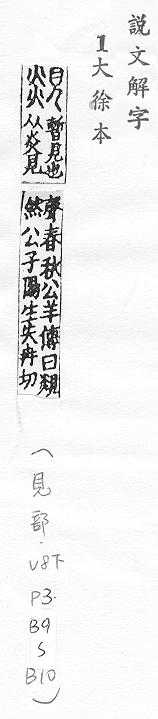 說文解字
1大徐本
覢 暫見也
从炎見
聲春秋公羊傳曰覢
然公子陽生失冉切
（見部．V8下 P3. B9 S B10）